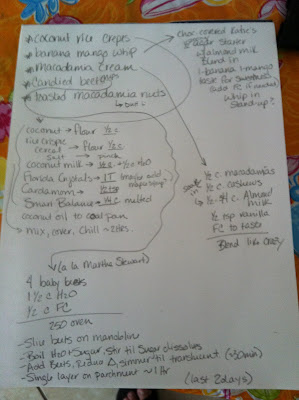 * coconut rice crepes
* banana mango whip
* macadamia cream
* Candied beet rings
* toasted macadamia nuts
choc. covered Katie's
starter
w/almond milk
Blend in
1-banana 1-mango
taste for sweetness
add FC if needed
whip in
stand-up?
coconut → flour ½ c.
rice crispie
cereal → flour ½ c
salt → pinch
coconut milk → ½ c. + ½ c H2O
Florida Crystals → 1T (maybe add
Cardamom → ½ tsp
Smart Balance → ¼ c melted
coconut oil to coat pan
→ mix, cover. Chill ~ 2 Hrs.
soak in
½ c. macadamias
½ c. cashews
½-¾ c. Almond
milk
½ tsp vanilla
FC to taste
Blend like crazy
(a la Martha Stewart)
4 baby beets
1 ½ c H2O
½ c FC
250 oven
-Slice beets on mandolin
-Boil H2O + Sugar, stir til Sugar dissolves
-Add Beets, Reduce △, simmer til translucent (~30min)
-Single layer on parchment ~ 1 Hr
(last 2 days)